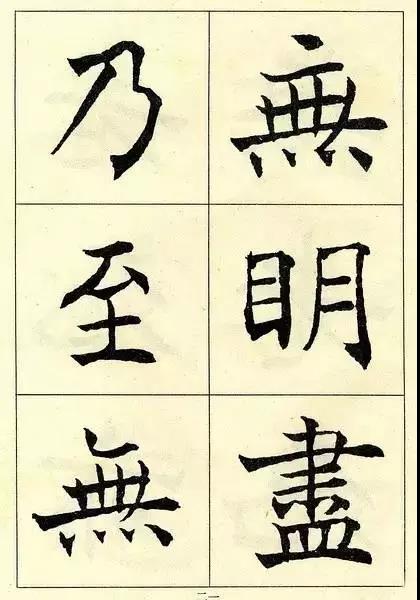 無明盡
乃至無
二一